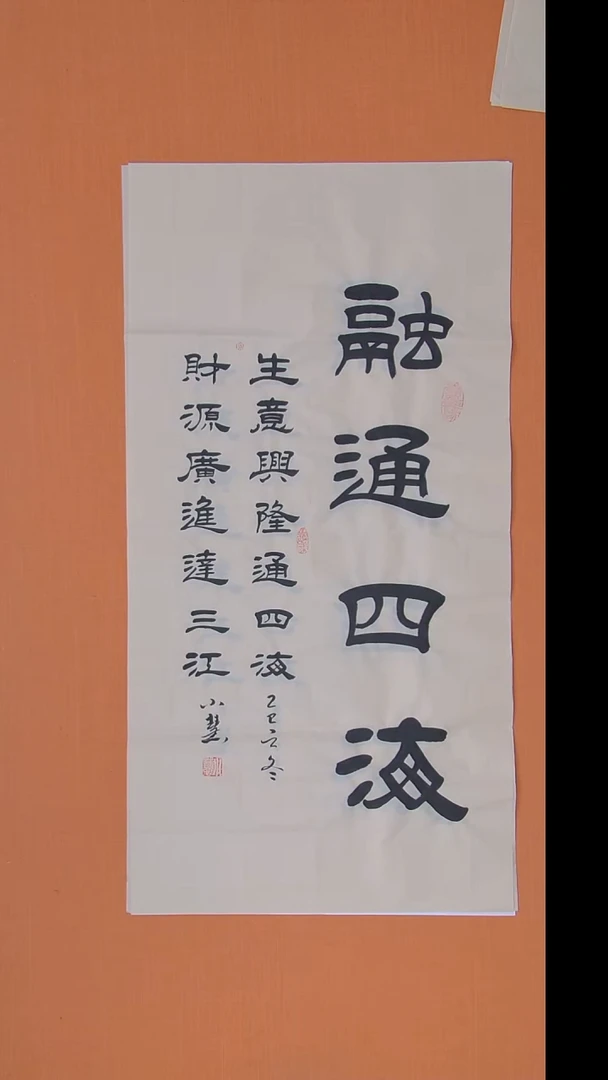 融通四海
生意興隆通四海
乙巳立冬
財源廣進達三江
小慧